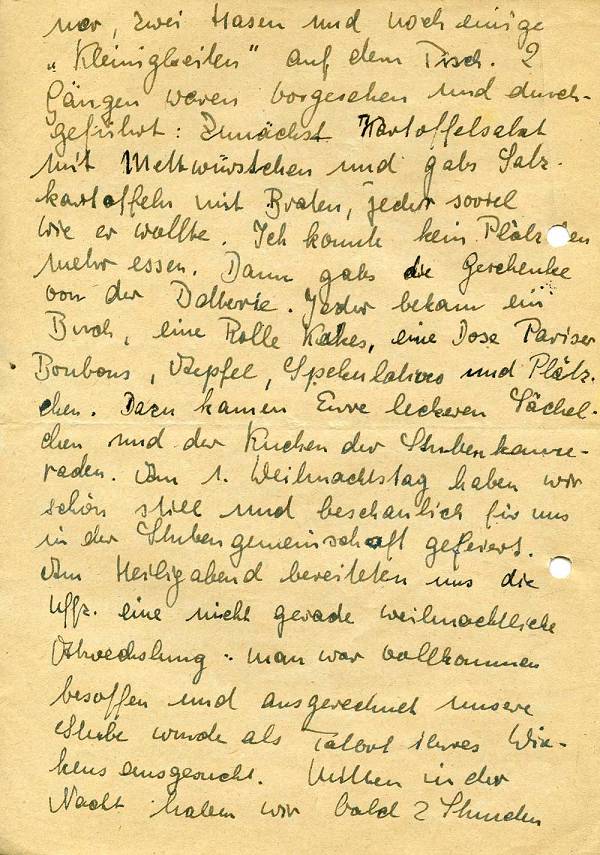 ner, zwei Hasen und noch einige
„Kleinigkeiten" auf dem Tisch. 2
Gängen waren vorgesehen und durch-
geführt: Zunächst Kartoffelsalat
mit Mettwürstchen und gabs Salz-
kartoffeln mit Braten, jeder soviel
wie er wollte. Ich konnte kein Plätzchen
mehr essen. Dann gabs die Geschenke
von der Batterie. Jeder bekam ein
Buch, eine Rolle Kakes, eine Dose Pariser
Bonbons, Aepfel, Spekulatius und Plätz-
chen. Dazu kamen Eure leckeren Sächel-
chen und der Kuchen der Stubenkame-
raden. Am 1. Weihnachtstag haben wir
schön still und beschaulich für uns
in der Stubengemeinschaft gefeiert.
Am Heiligabend bereiteten uns die
Uffz. eine nicht gerade weihnachtliche
Abwechslung: man war vollkommen
besoffen und ausgerechnet unsere
Stube wurde als Tatort ihres Wir-
kens ausgesucht. Mitten in der
Nacht haben wir bald 2 Stunden